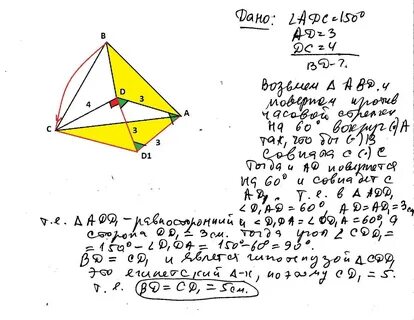 Дано: ∠ADC=150°
AD=3
DC=4
BD-?
B
D
4
3
A
C
3
3
D1
Возьмем △ABD и
повернем против
часовой стрелки
на 60° вокруг (·)A
так, что бы (·)B
совпала с (·)C
Тогда и AD повернется
на 60° и совпадет с
AD₁. Т.е. в △ADD₁
∠D₁AD=60° AD=AD₁=3см
т.е. △ADD₁-равносторонний и ∠D₁DA=∠DD₁A=60°, а
сторона DD₁=3см. Тогда угол ∠CDD₁=
=150°-∠D₁DA=150°-60°=90°.
BD=CD₁ и является гипотенузой △CDD₁
это египетский △-к, поэтому CD₁=5.
Т.е. BD=CD₁=5см.